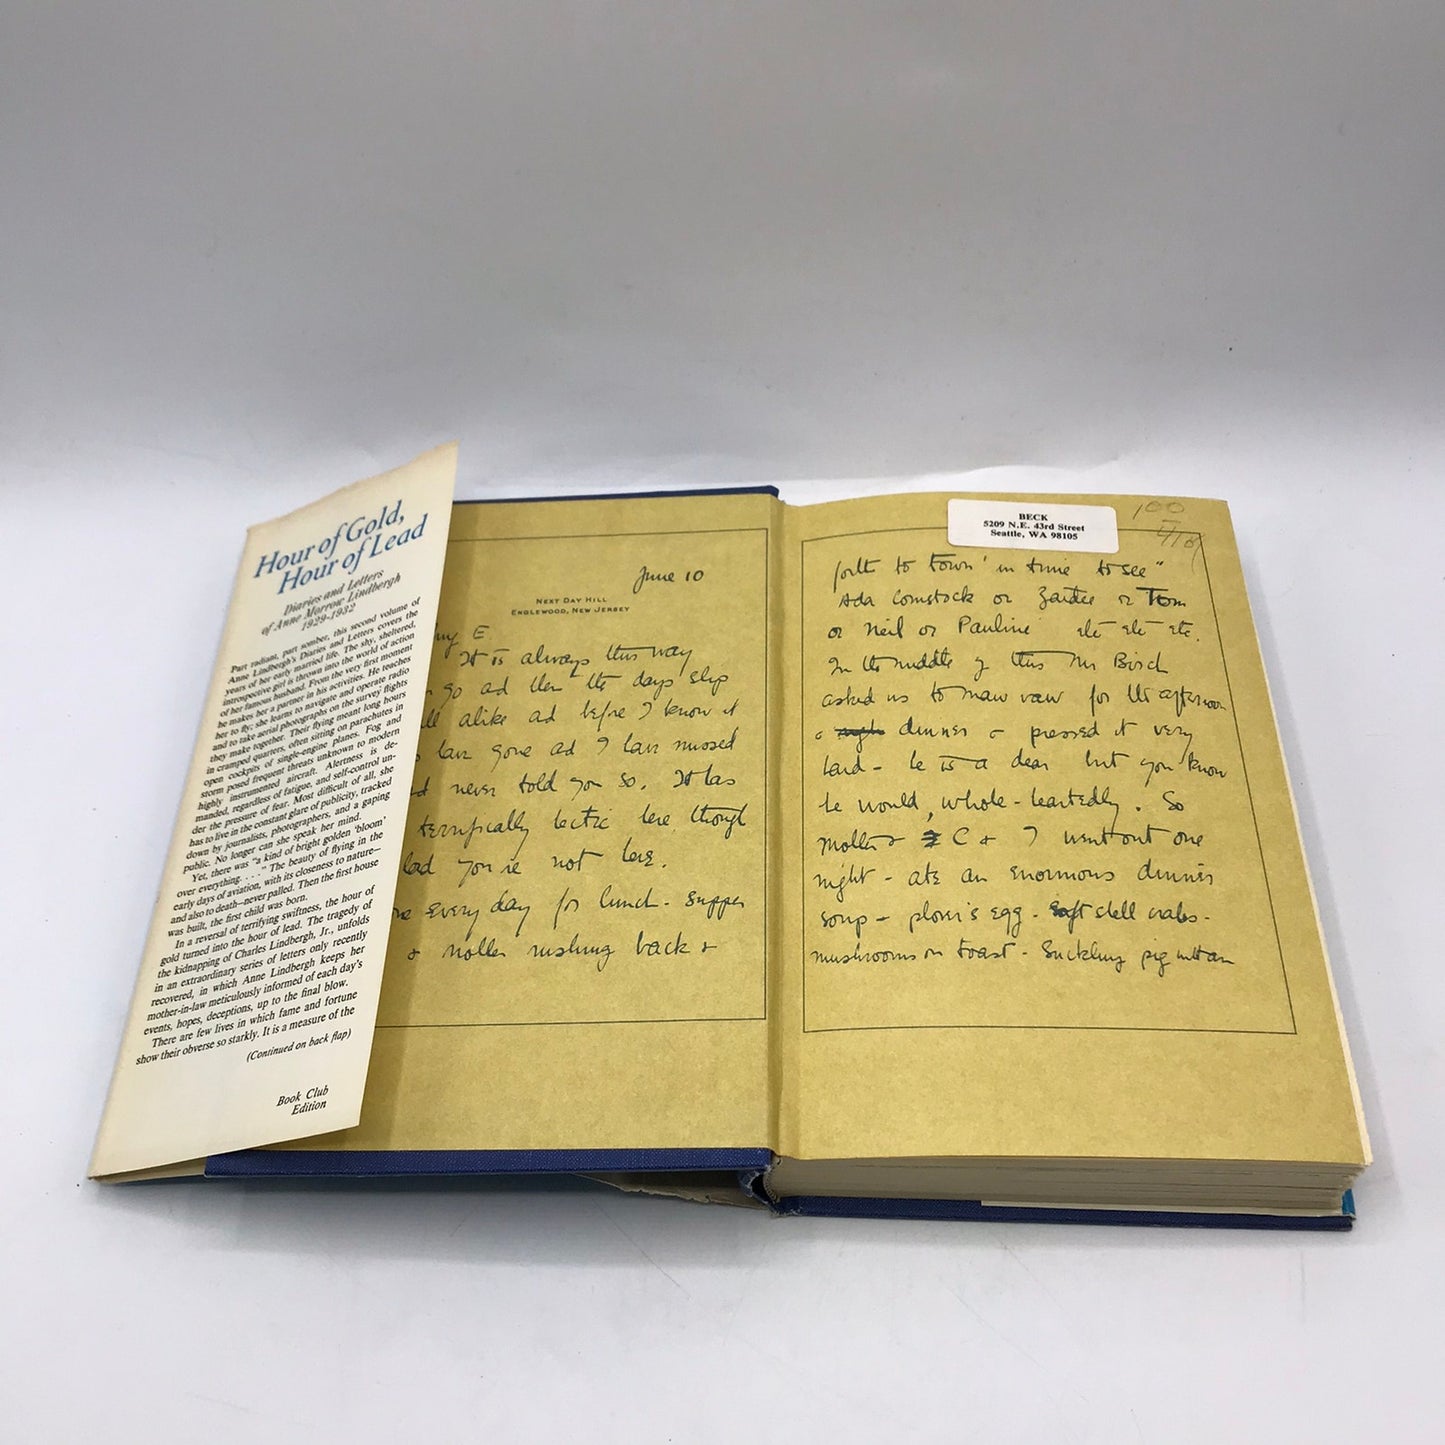 Hour of Gold,
Hour of Lead
Diaries and Letters
of Anne Morrow Lindbergh
1929-1932
Part radiant, part somber, this second volume of
Anne Lindbergh's Diaries and Letters covers the
years of her early married life. The shy, sheltered,
introspective girl is thrown into the world of action
of her famous husband. From the very first moment
he makes her a partner in his activities. He teaches
her to fly; she learns to navigate and operate radio
and to take aerial photographs on the survey flights
they make together. Their flying meant long hours
in cramped quarters, often sitting on parachutes in
open cockpits of single-engine planes. Fog and
storm posed frequent threats unknown to modern
highly instrumented aircraft. Alertness is de-
manded, regardless of fatigue, and self-control un-
der the pressure of fear. Most difficult of all, she
has to live in the constant glare of publicity, tracked
down by journalists, photographers, and a gaping
public. No longer can she speak her mind.
Yet, there was "a kind of bright golden 'bloom'
over everything. . . ." The beauty of flying in the
early days of aviation, with its closeness to nature—
and also to death—never palled. Then the first house
was built, the first child was born.
In a reversal of terrifying swiftness, the hour of
gold turned into the hour of lead. The tragedy of
the kidnapping of Charles Lindbergh, Jr., unfolds
in an extraordinary series of letters only recently
recovered, in which Anne Lindbergh keeps her
mother-in-law meticulously informed of each day's
events, hopes, deceptions, up to the final blow.
There are few lives in which fame and fortune
show their obverse so starkly. It is a measure of the
(Continued on back flap)
Book Club
Edition
June 10
NEXT DAY HILL
ENGLEWOOD, NEW JERSEY
E.
It is always this way
go ad then the days slip
alike ad before I know it
have gone ad I have missed
never told you so. It has
terrifically hectic here, though
you're not here.
every day for lunch - supper
& mother rushing back &
BECK
5209 N.E. 43rd Street
Seattle, WA 98105
100
forth to town "in time to see"
Ada Comstock or or Tom
or Neil or Pauline etc etc etc.
In the middle of this Mr Birch
asked us to for the afternoon
& dinner & pressed it very
hard - he is a dear but you know
he would, whole-heartedly. So
Mother & C & I went out one
night - ate an enormous dinner
soup - plover's egg - soft shell crabs -
mushrooms on toast - Suckling pig with an